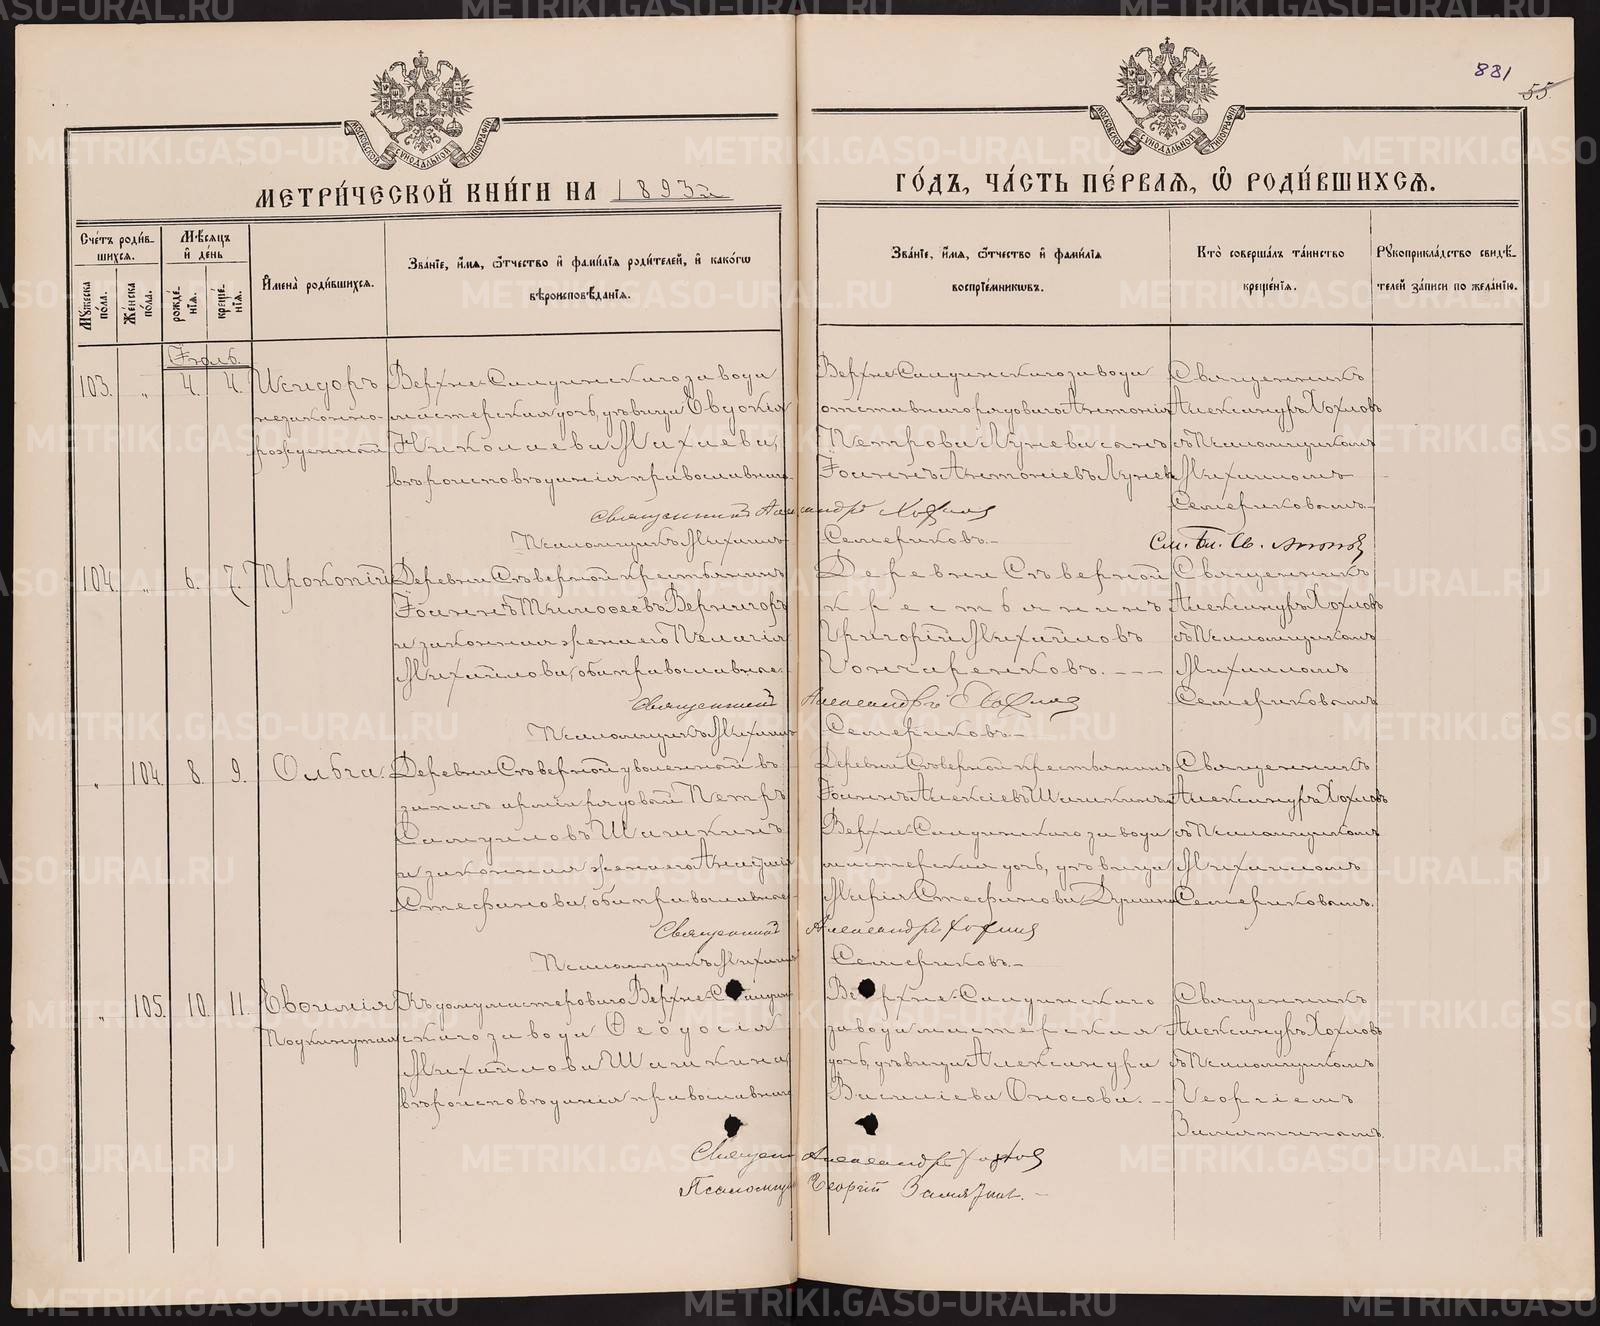 881
55.
МОСКОВСКОЙ СѴНОДАЛЬНОЙ ТИПОГРАФІИ
МОСКОВСКОЙ СѴНОДАЛЬНОЙ ТИПОГРАФІИ
МЕТРИ́ЧЕСКОЙ КНИ́ГИ НА 1893й
ГО́ДЪ, ЧА́СТЬ ПЕ́РВАЯ, Ѡ҆ РОДИ́ВШИХСЯ.
Сче́тъ роди́в-
шихся.
Мѣ́сяцъ
и҆ де́нь
Му́жеска по́ла.
Же́нска по́ла.
рожде́-нїя.
креще́-нїя.
И҆мена̀ роди́вшихся.
Зва́нїе, и҆́мя, ѻ҆́тчество и҆ фами́лїя роди́телей, и҆ како́гѡ
вѣроисповѣ́данїя.
Зва́нїе, и҆́мя, ѻ҆́тчество и҆ фами́лїя
воспрїе́мникѡвъ.
Кто̀ соверша́лъ та́инство
креще́нїя.
Рукоприкла́дство свидѣ́-
телей за́писи по жела́нїю.
Іюль.
103. „ 4. 4. Исидоръ
незаконно-
рожденный
Верхне-Салдинскаго завода
мастерская дочь, дѣвица Евдокія
Николаева Михаева,
вѣроисповѣданія православнаго
Верхне-Салдинскаго завода
отставнаго рядоваго Антонія
Петрова Лунева сынъ
Іоаннъ Антоніевъ Луневъ
Священникъ
Александръ Хохловъ
съ Псаломщикомъ
Михаиломъ
Семериковымъ.
Священникъ Александръ Хохловъ
Псаломщикъ Михаилъ Семериковъ.
104. „ 6. 7. Прокопій
Деревни Сѣверной крестьянинъ
Іоаннъ Тимоѳеевъ Вернигоръ
и законная жена его Пелагія
Михайлова, оба православные.
Деревни Сѣверной
крестьянинъ
Григорій Михайловъ
Гончаренковъ.
Священникъ
Александръ Хохловъ
съ Псаломщикомъ
Михаиломъ
Семериковымъ
Священникъ Александръ Хохловъ
Псаломщикъ Михаилъ Семериковъ.
„ 104. 8. 9. Ольга.
Деревни Сѣверной уволенный въ
запасъ арміи рядовой Петръ
Самуиловъ Шашкинъ
и законная жена его
Стефанова, оба православные
Деревни Сѣверной крестьянинъ
Іоаннъ Алексіевъ Шашкинъ и
Верхне-Салдинскаго завода
мастерская дочь, дѣвица
Марія Стефанова
Священникъ
Александръ Хохловъ
съ Псаломщикомъ
Михаиломъ
Семериковымъ.
Священникъ Александръ Хохловъ
Псаломщикъ Михаилъ Семериковъ.
„ 105. 10. 11. Евѳимія
Подкинутая
Къ дому мастероваго Верхне-Салдин-
скаго завода Ѳеодосія
Михайлова Шашкина,
вѣроисповѣданія православнаго
Верхне-Салдинскаго
завода мастерская
дочь, дѣвица Александра
Василіева Оносова.
Священникъ
Александръ Хохловъ
съ Псаломщикомъ
Георгіемъ
Замятинымъ.
Александръ Хохловъ
Георгій Замятинъ.
METRIKI.GASO-URAL.RU